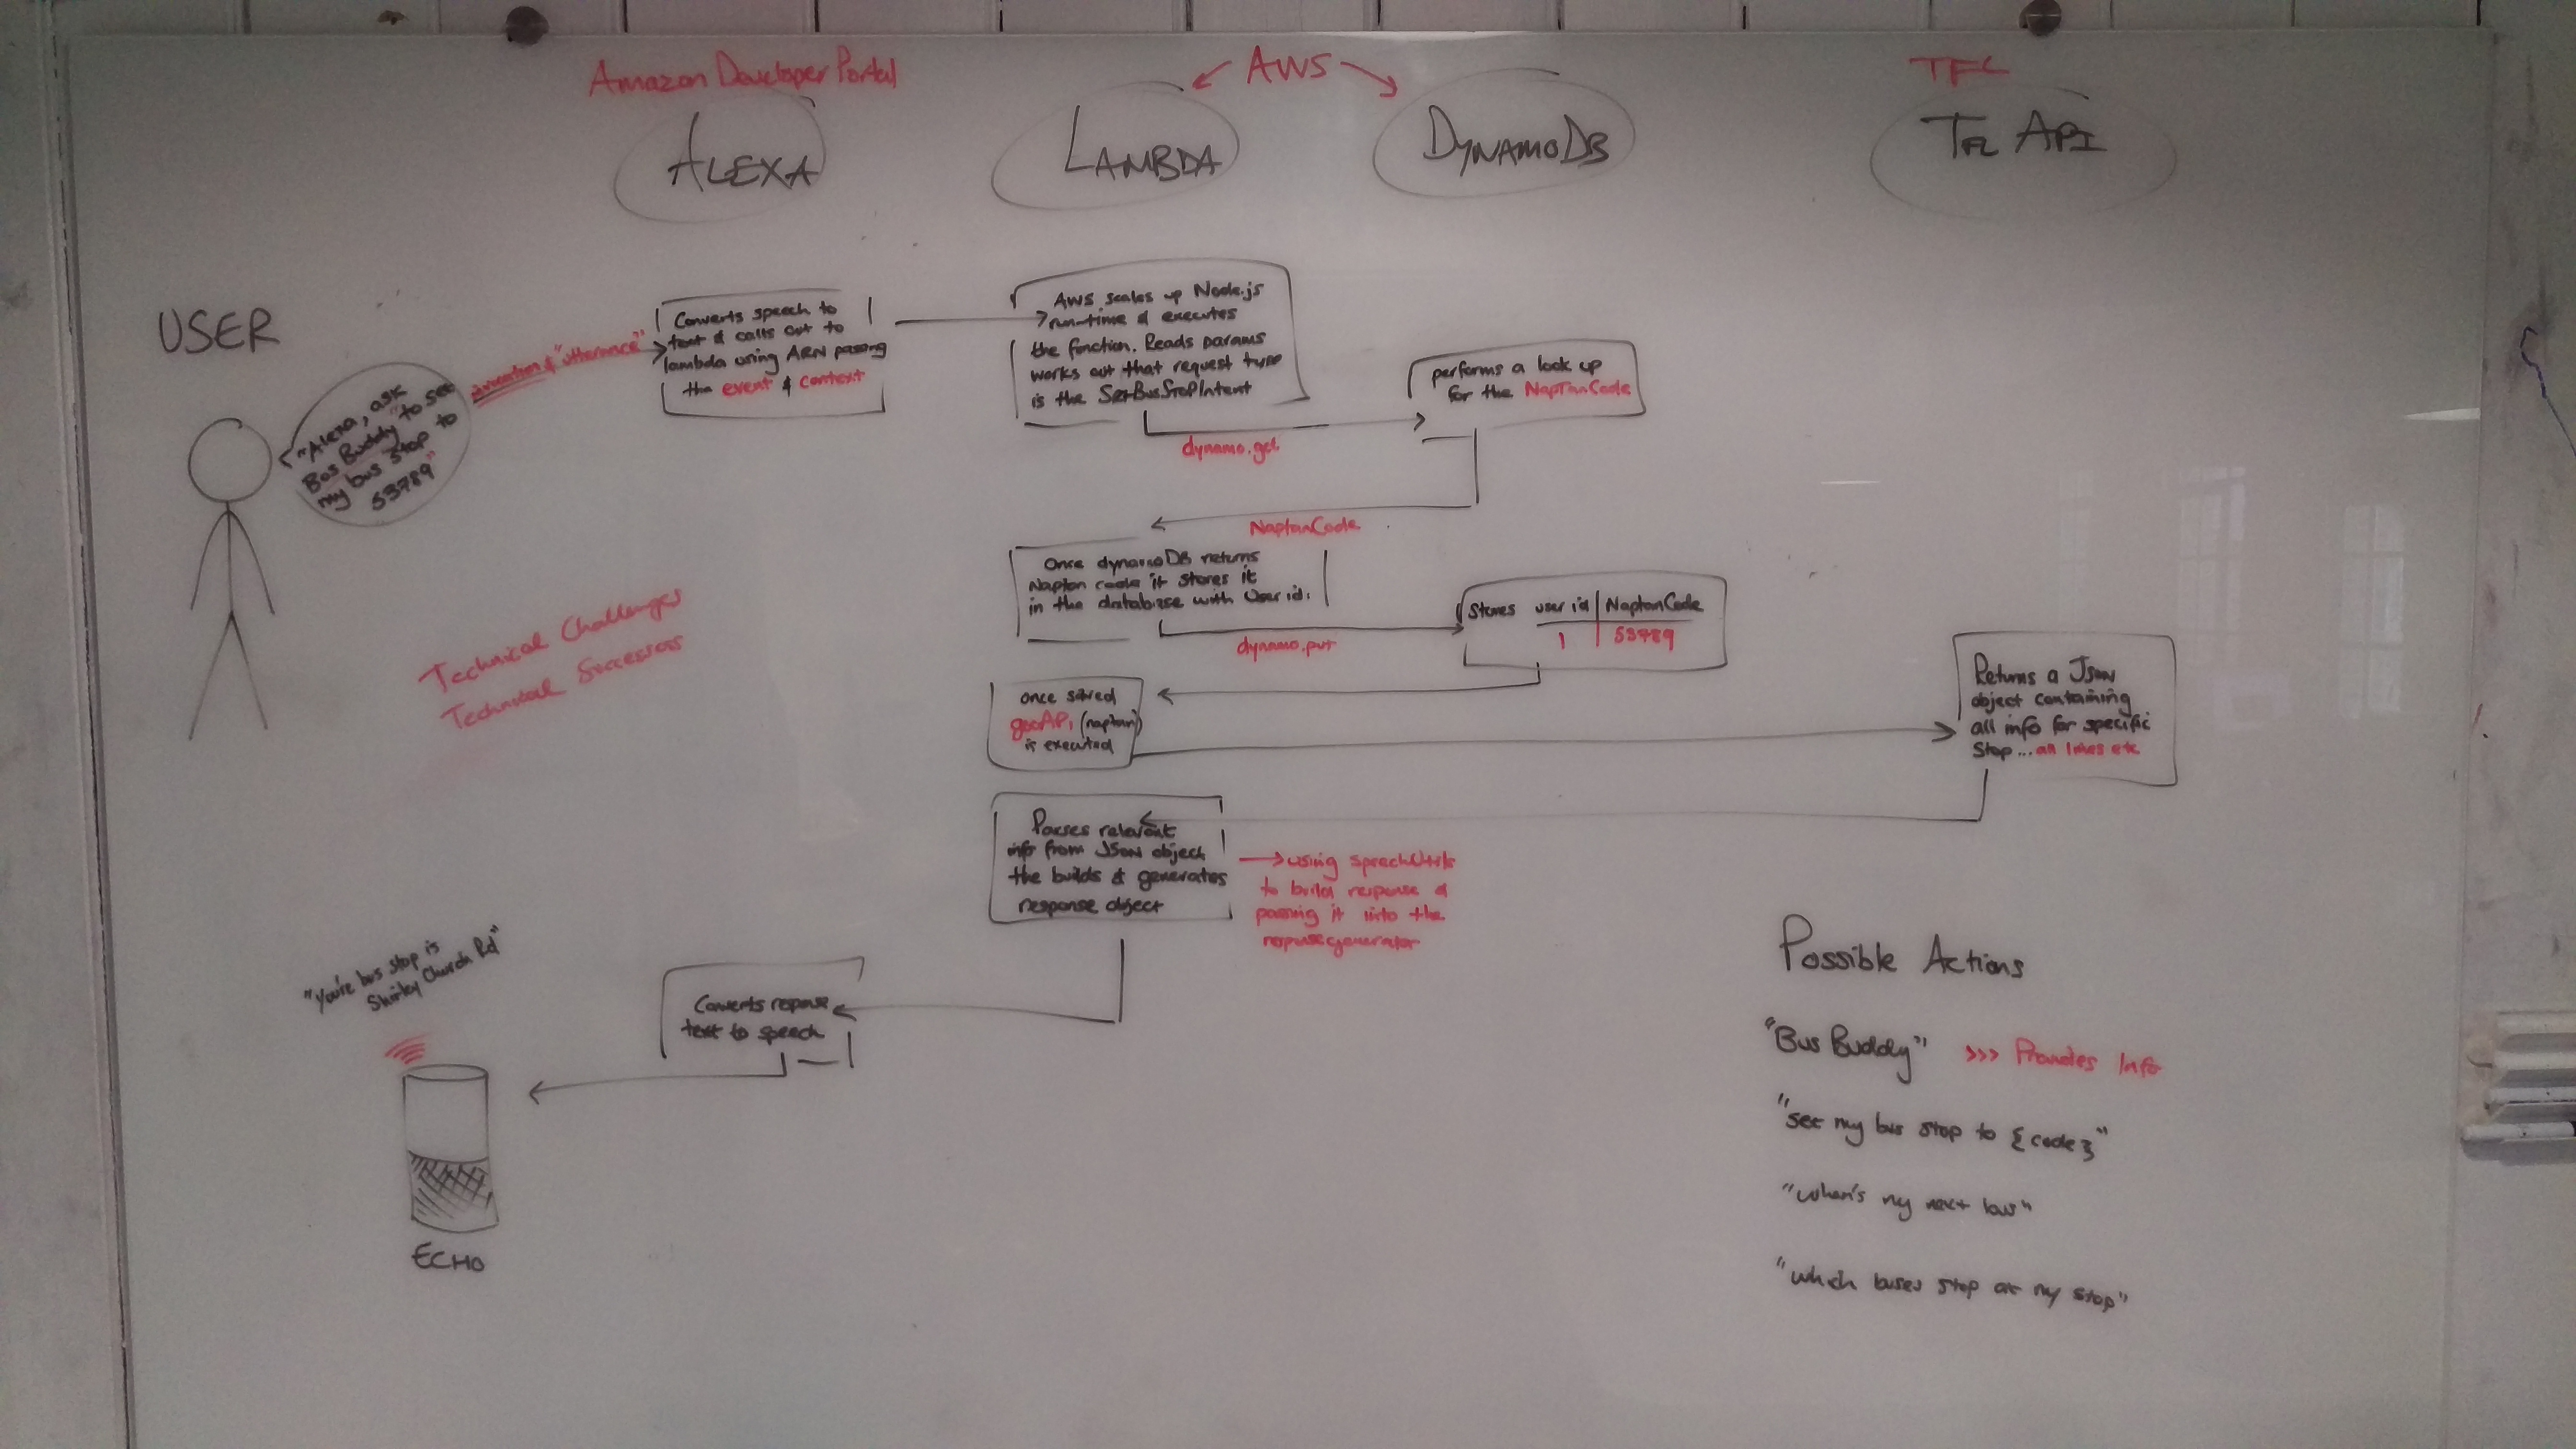 Amazon Developer Portal
AWS
TFL
ALEXA
LAMBDA
DYNAMODB
TFL API
USER
"Alexa, ask
Bus Buddy "to set
my bus stop to
53789"
invocation & "utterance"
Converts speech to
text & calls out to
lambda using ARN passing
the event & context
AWS scales up Node.js
run-time & executes
the function. Reads params
works out that request type
is the SetBusStopIntent
dynamo.get
performs a look up
for the NapTanCode
NaptanCode
Once dynamoDB returns
Naptan code it stores it
in the database with User id.
dynamo.put
Stores user id NaptanCode
1 53789
once saved
(naptan)
is executed
Returns a JSON
object containing
all info for specific
Stop... all lines etc
Parses relevant
info from JSON object
the builds & generates
response object
using speechUtils
to build response &
passing it into the
responsegenerator
Converts response
text to speech
Technical Challenges
Technical Successes
"You're bus stop is
Shirley Church Rd"
ECHO
Possible Actions
"Bus Buddy" >>> Provides Info
"set my bus stop to {code}"
"When's my next bus"
"which buses stop at my stop"